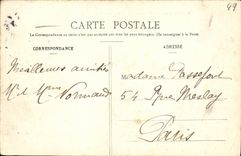 49
CARTE POSTALE
La Correspondance au recto n'est pas acceptée par tous les pays étrangers. (Se renseigner à la Poste).
CORRESPONDANCE
ADRESSE
Meilleures amitiés
M. et Mme Normand
Madame Passefort
54 Rue Meslay
Paris